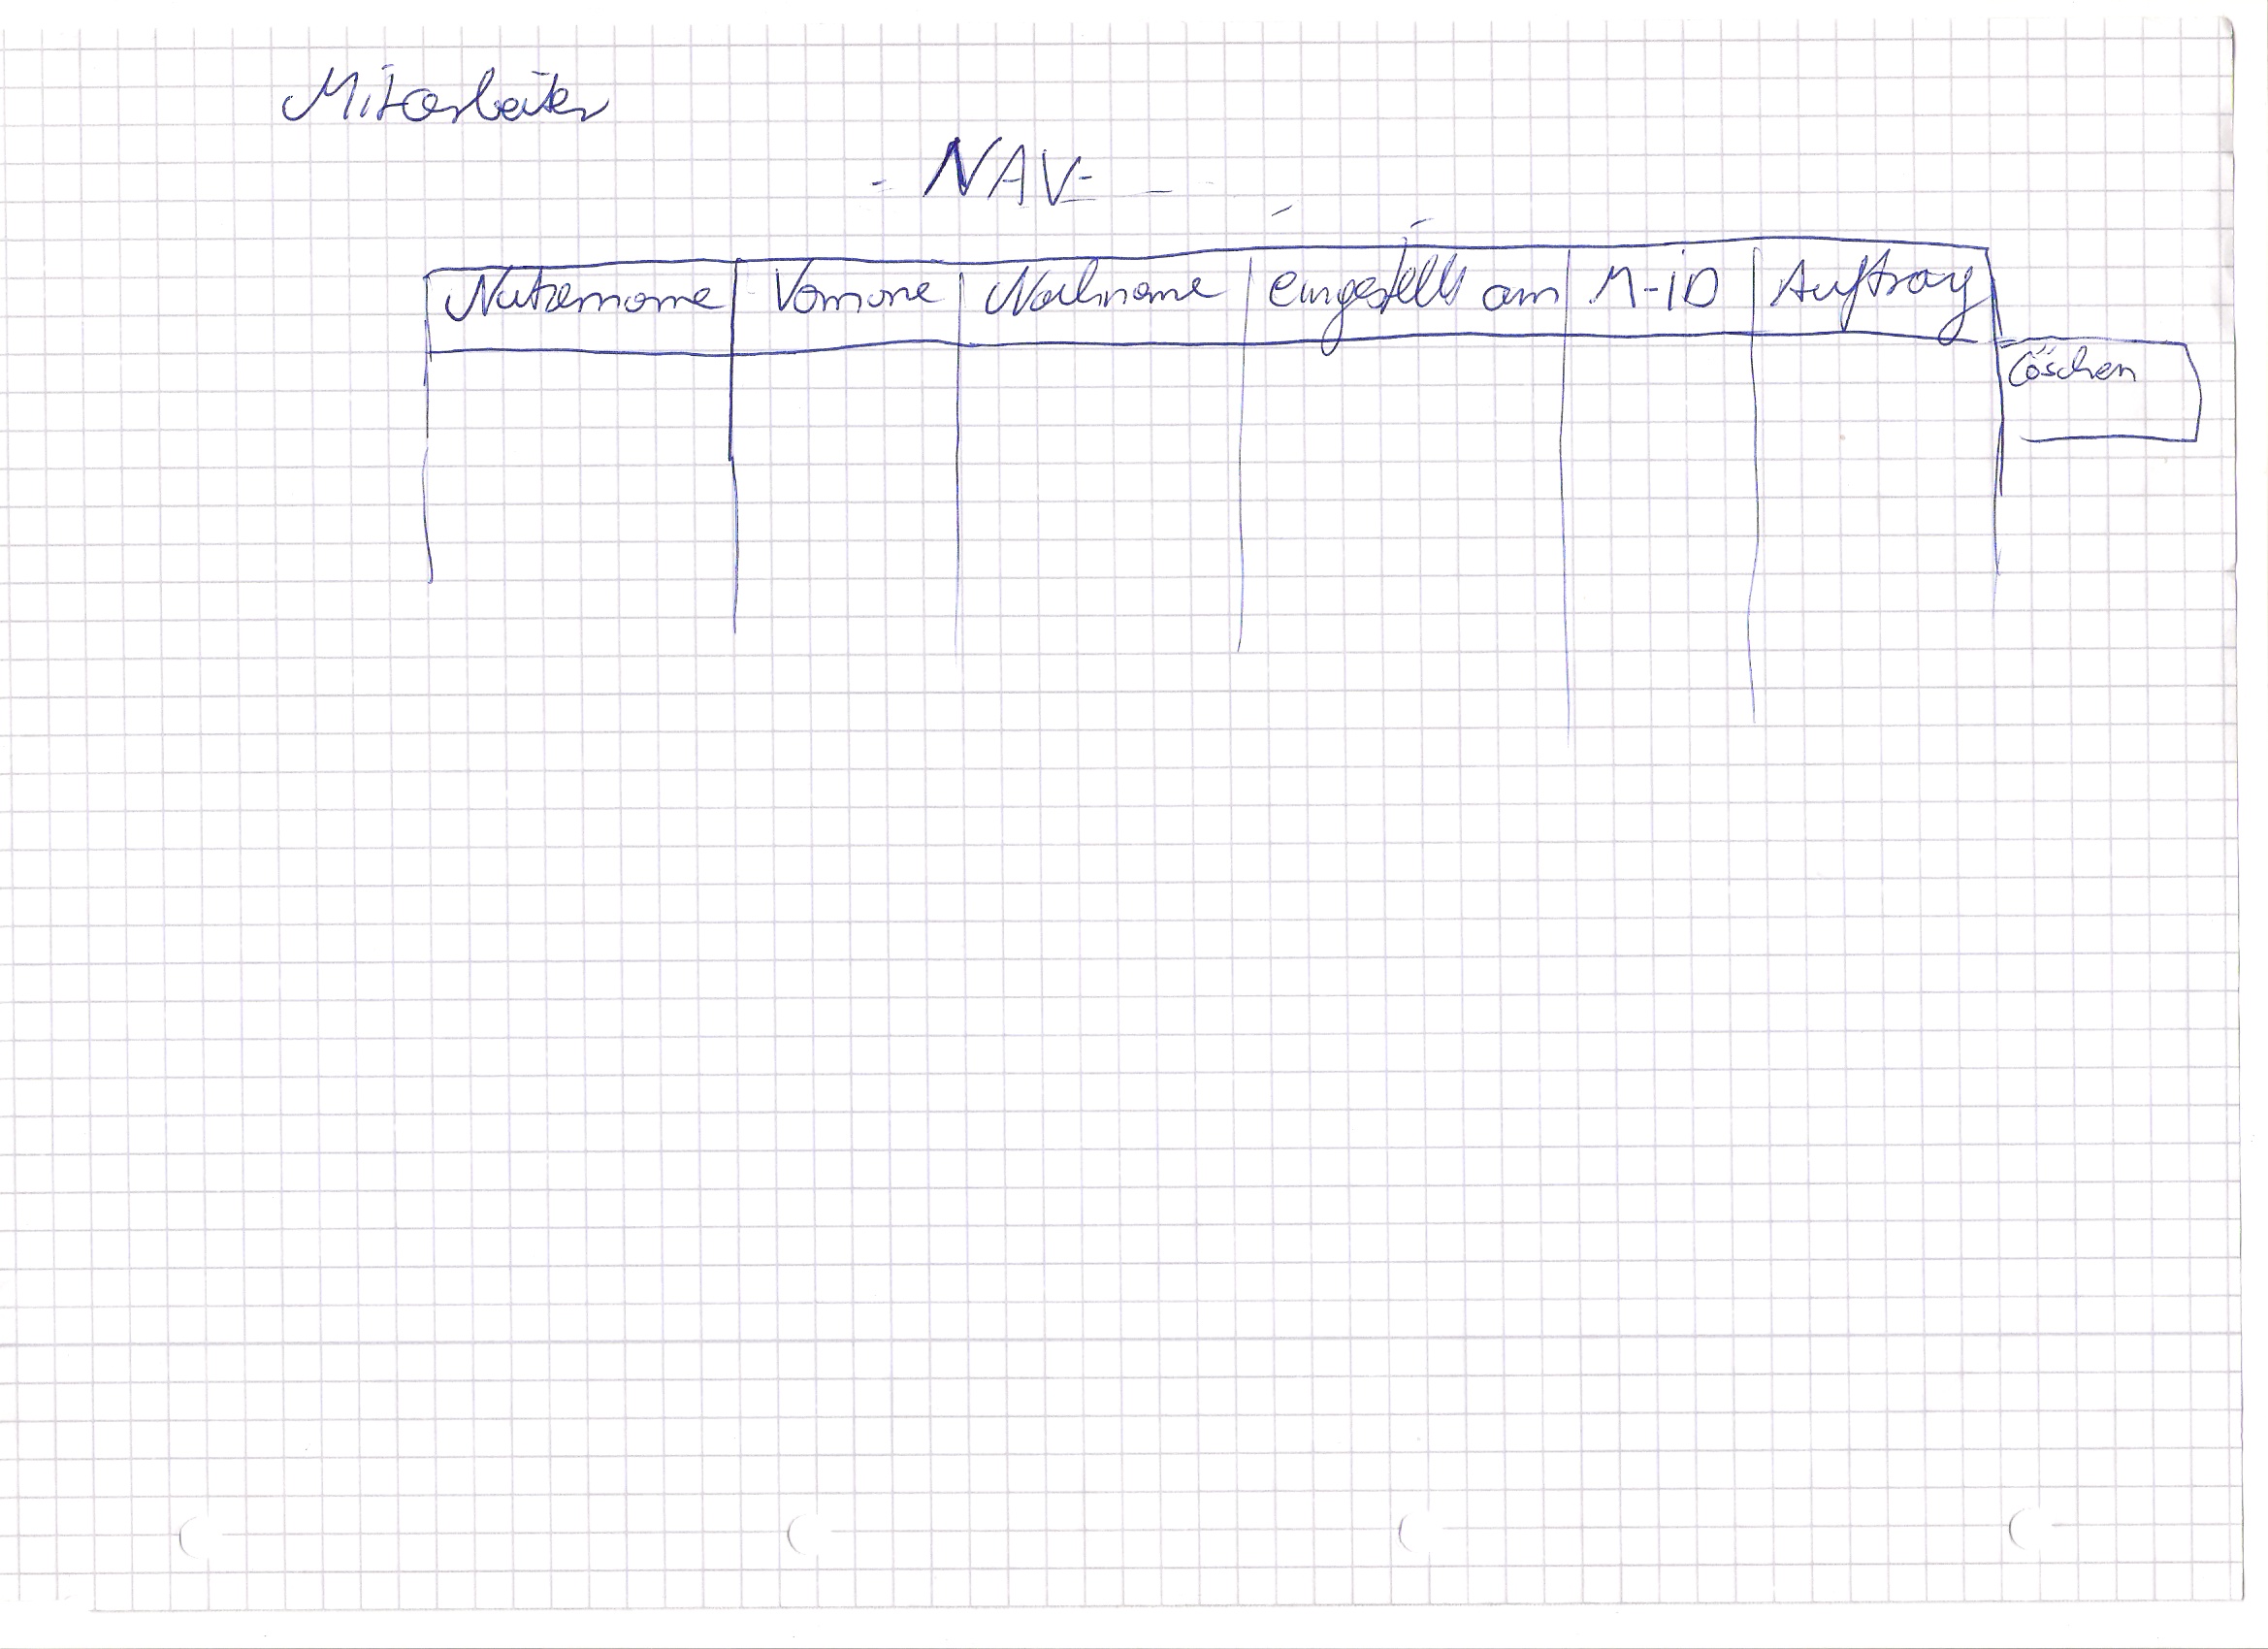 Mitarbeiter
- NAV -
Nutzername Vorname Nachname eingestellt am M-ID Auftrag
Löschen